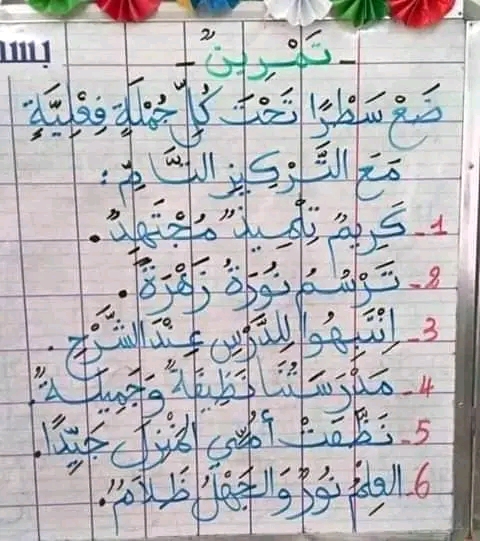 بسم
- تَمْرِينٌ -
ضَعْ سَطْرًا تَحْتَ كُلِّ جُمْلَةٍ فِعْلِيَّةٍ
مَعَ التَّرْكِيزِ التَّامِّ :
1- كَرِيمٌ تِلْمِيذٌ مُجْتَهِدٌ.
2- تَرْسُمُ نُورَةُ زَهْرَةً.
3- اِنْتَبِهُوا لِلدَّرْسِ عِنْدَ الشَّرْحِ.
4- مَدْرَسَتُنَا نَظِيفَةٌ وَجَمِيلَةٌ.
5- نَظَّفَتْ أُمِّي المَنْزِلَ جَيِّدًا.
6- العِلْمُ نُورٌ وَالجَهْلُ ظَلَامٌ.